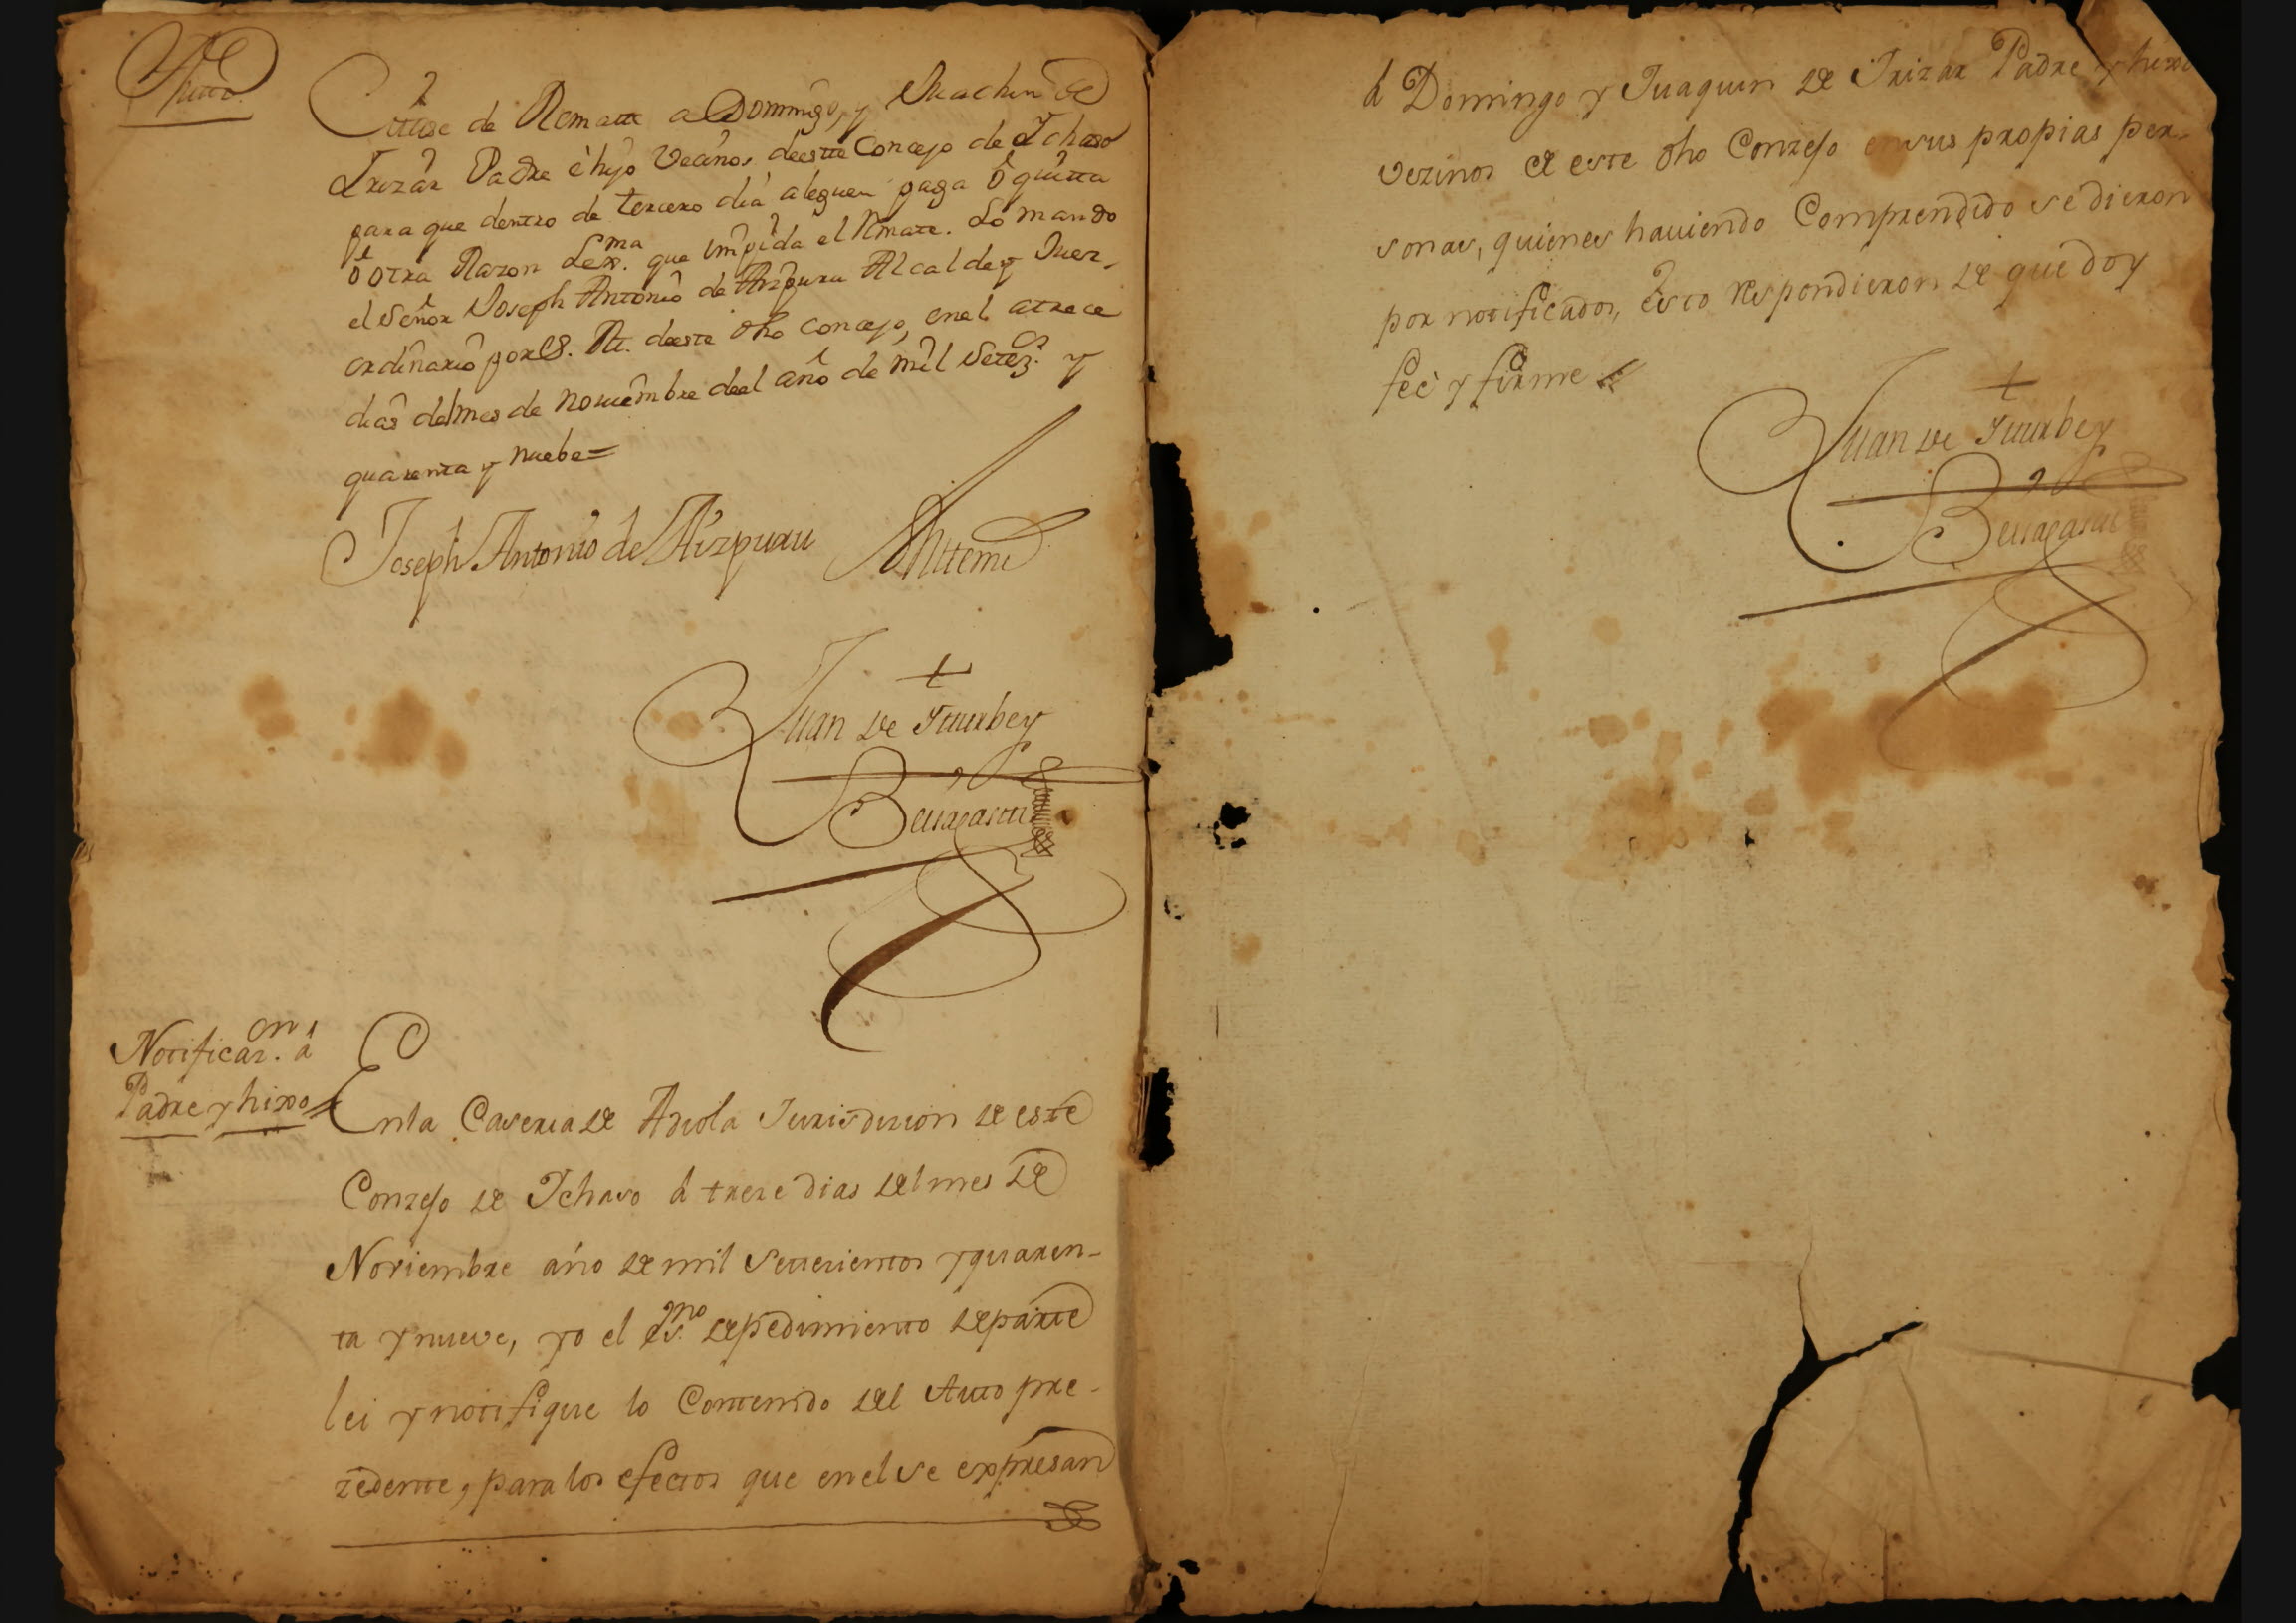 Auto
Cittese de Rematte a Domingo, y Juachin de
Irizar Padre è hijo Vecinos deeste Concejo de Ichaso
para que dentro de tercero dia aleguen paga ó quitta
ó otra Razon Lexma. que impida el Rmate. Lo mando
el Señor Joseph Antonio de Aizpuru Alcalde y Juez
ordinario por S. M. deeste dho Concejo, enel a trece
dias del mes de Noviembre deel año de mil Setezs. y
quarenta y nuebe=
Joseph Antonio de Aizpuru Antemi
Juan de Yturbey
Beuagastti
Notificazon. á
Padre y hixo
Enla Caseria de Adiola Jurisdizion de este
Conzejo de Ichaso á treze dias del mes de
Noviembre año de mil settezientos y quaren-
ta y nueve, yo el esno. de pedimiento de parte
lei y notifique lo Contenido del Auto pre-
zedente, para los efectos que en el se expresan
á Domingo y Juaquin de Irizar Padre y hixo
vezinos de este dho Conzejo en sus propias per-
sonas, quienes haviendo Comprendido se dieron
por notificados, esto respondieron de que doy
feè y firme
Juan de Yturbey
Beuagastti